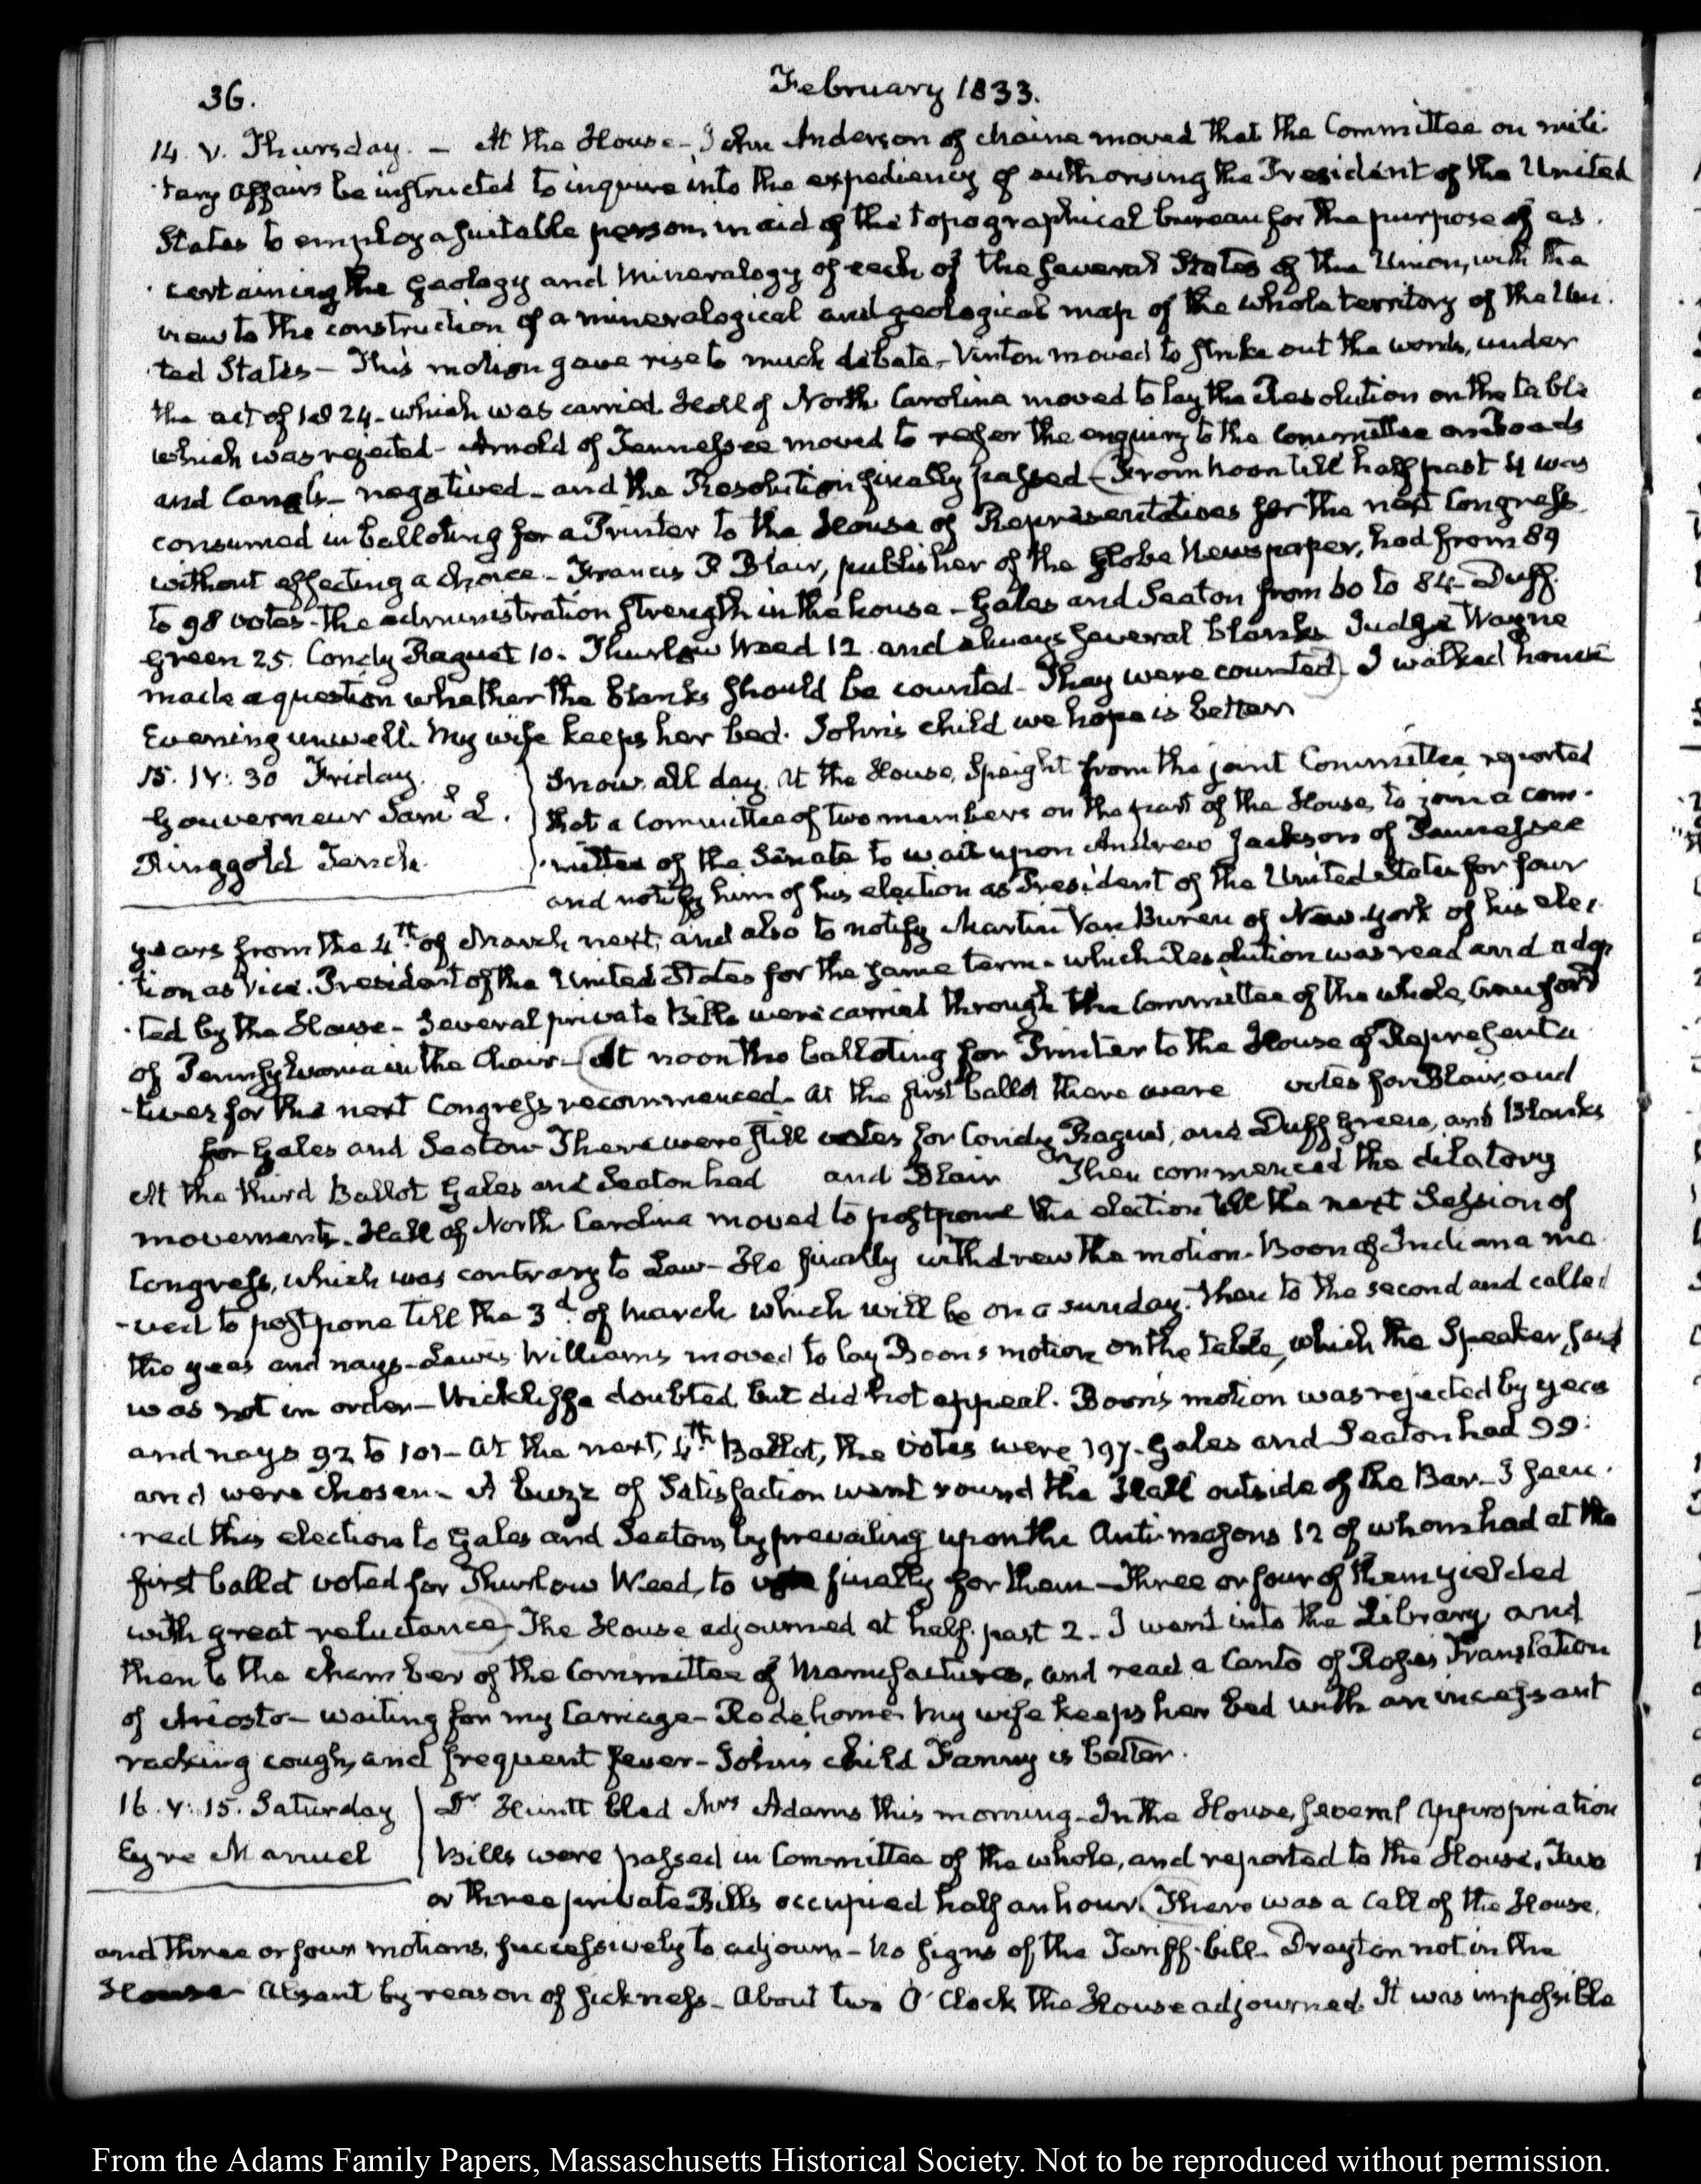 36.
February 1833.
14. V. Thursday. – At the House – John Anderson of Maine moved that the Committee on mili-
-tary affairs be instructed to inquire into the expediency of authorising the President of the United
States to employ a suitable person in aid of the topographical bureau for the purpose of as-
-certaining the geology and mineralogy of each of the several States of the Union, with the
view to the construction of a mineralogical and geological map of the whole territory of the Uni-
-ted States – This motion gave rise to much debate – Vinton moved to strike out the words, under
the act of 1824 – which was carried. Hall of North Carolina moved to lay the Resolution on the table
which was rejected – Arnold of Tennessee moved to refer the enquiry to the Committee on Roads
and Canals – negatived – and the Resolution finally passed – (From noon till half past 4 was
consumed in balloting for a Printer to the House of Representatives for the next Congress
without effecting a choice – Francis P Blair, publisher of the Globe Newspaper, had from 89
to 98 votes – the administration strength in the house – Gales and Seaton from 60 to 84 – Duff
Green 25. Condy Raguet 10. Thurlow Weed 12 and always several blanks Judge Wayne
made a question whether the blanks should be counted – They were counted). I walked home
Evening unwell. My wife keeps her bed. John's child we hope is better
15. IV: 30 Friday.
Gouverneur Saml L.
Ringgold Tench
Snow all day. At the House, Speight from the joint Committee, reported
that a Committee of two members on the part of the House, to join a com-
-mittee of the Senate to wait upon Andrew Jackson of Tennessee
and notify him of his election as President of the United States for four
years from the 4th of March next, and also to notify Martin Van Buren of New-York of his elec-
-tion as Vice-President of the United States for the same term – which Resolution was read and adop
-ted by the House – Several private Bills were carried through the Committee of the whole, Crawford
of Pennsylvania in the Chair – (At noon the balloting for Printer to the House of Representa
-tives for the next Congress recommenced – At the first ballot there were votes for Blair, and
for Gales and Seaton There were still votes for Condy Raguet, and Duff Green, and Blanks
At the third Ballot Gales and Seaton had and Blair Then commenced the dilatory
movements. Hall of North Carolina moved to postpone the election till the next Session of
Congress, which was contrary to Law – He finally withdrew the motion – Boon of Indiana mo
-ved to postpone till the 3d of March which will be on a sunday – then to the second and called
the yeas and nays – Lewis Williams moved to lay Boon's motion on the table, which the Speaker, said
was not in order – Wickliffe doubted but did not appeal. Boon's motion was rejected by yeas
and nays 92 to 101 – At the next, 4th Ballot, the votes were 197 – Gales and Seaton had 99:
and were chosen – A buzz of Satisfaction went round the Hall outside of the Bar – I secu-
-red this election to Gales and Seaton, by prevailing upon the Anti-masons 12 of whom had at the
first ballot voted for Thurlow Weed, to vote finally for them – Three or four of them yielded
with great reluctance) The House adjourned at half-past 2. I went into the Library, and
then to the chamber of the Committee of Manufactures, and read a Canto of Rose's Translation
of Ariosto – waiting for my Carriage – Rode home. My wife keeps her bed with an incessant
racking cough, and frequent fever – John's child Fanny is better.
16. V: 15. Saturday
Eyre Manuel
Dr Huntt bled Mrs Adams this morning – In the House, several appropriation
Bills were passed in Committee of the whole, and reported to the House. Two
or three private Bills occupied half an hour. (There was a call of the House,
and three or four motions, successively to adjourn – No signs of the Tariff-bill – Drayton not in the
House – Absent by reason of sickness – About two O'Clock the House adjourned. It was impossible
From the Adams Family Papers, Massachusetts Historical Society. Not to be reproduced without permission.